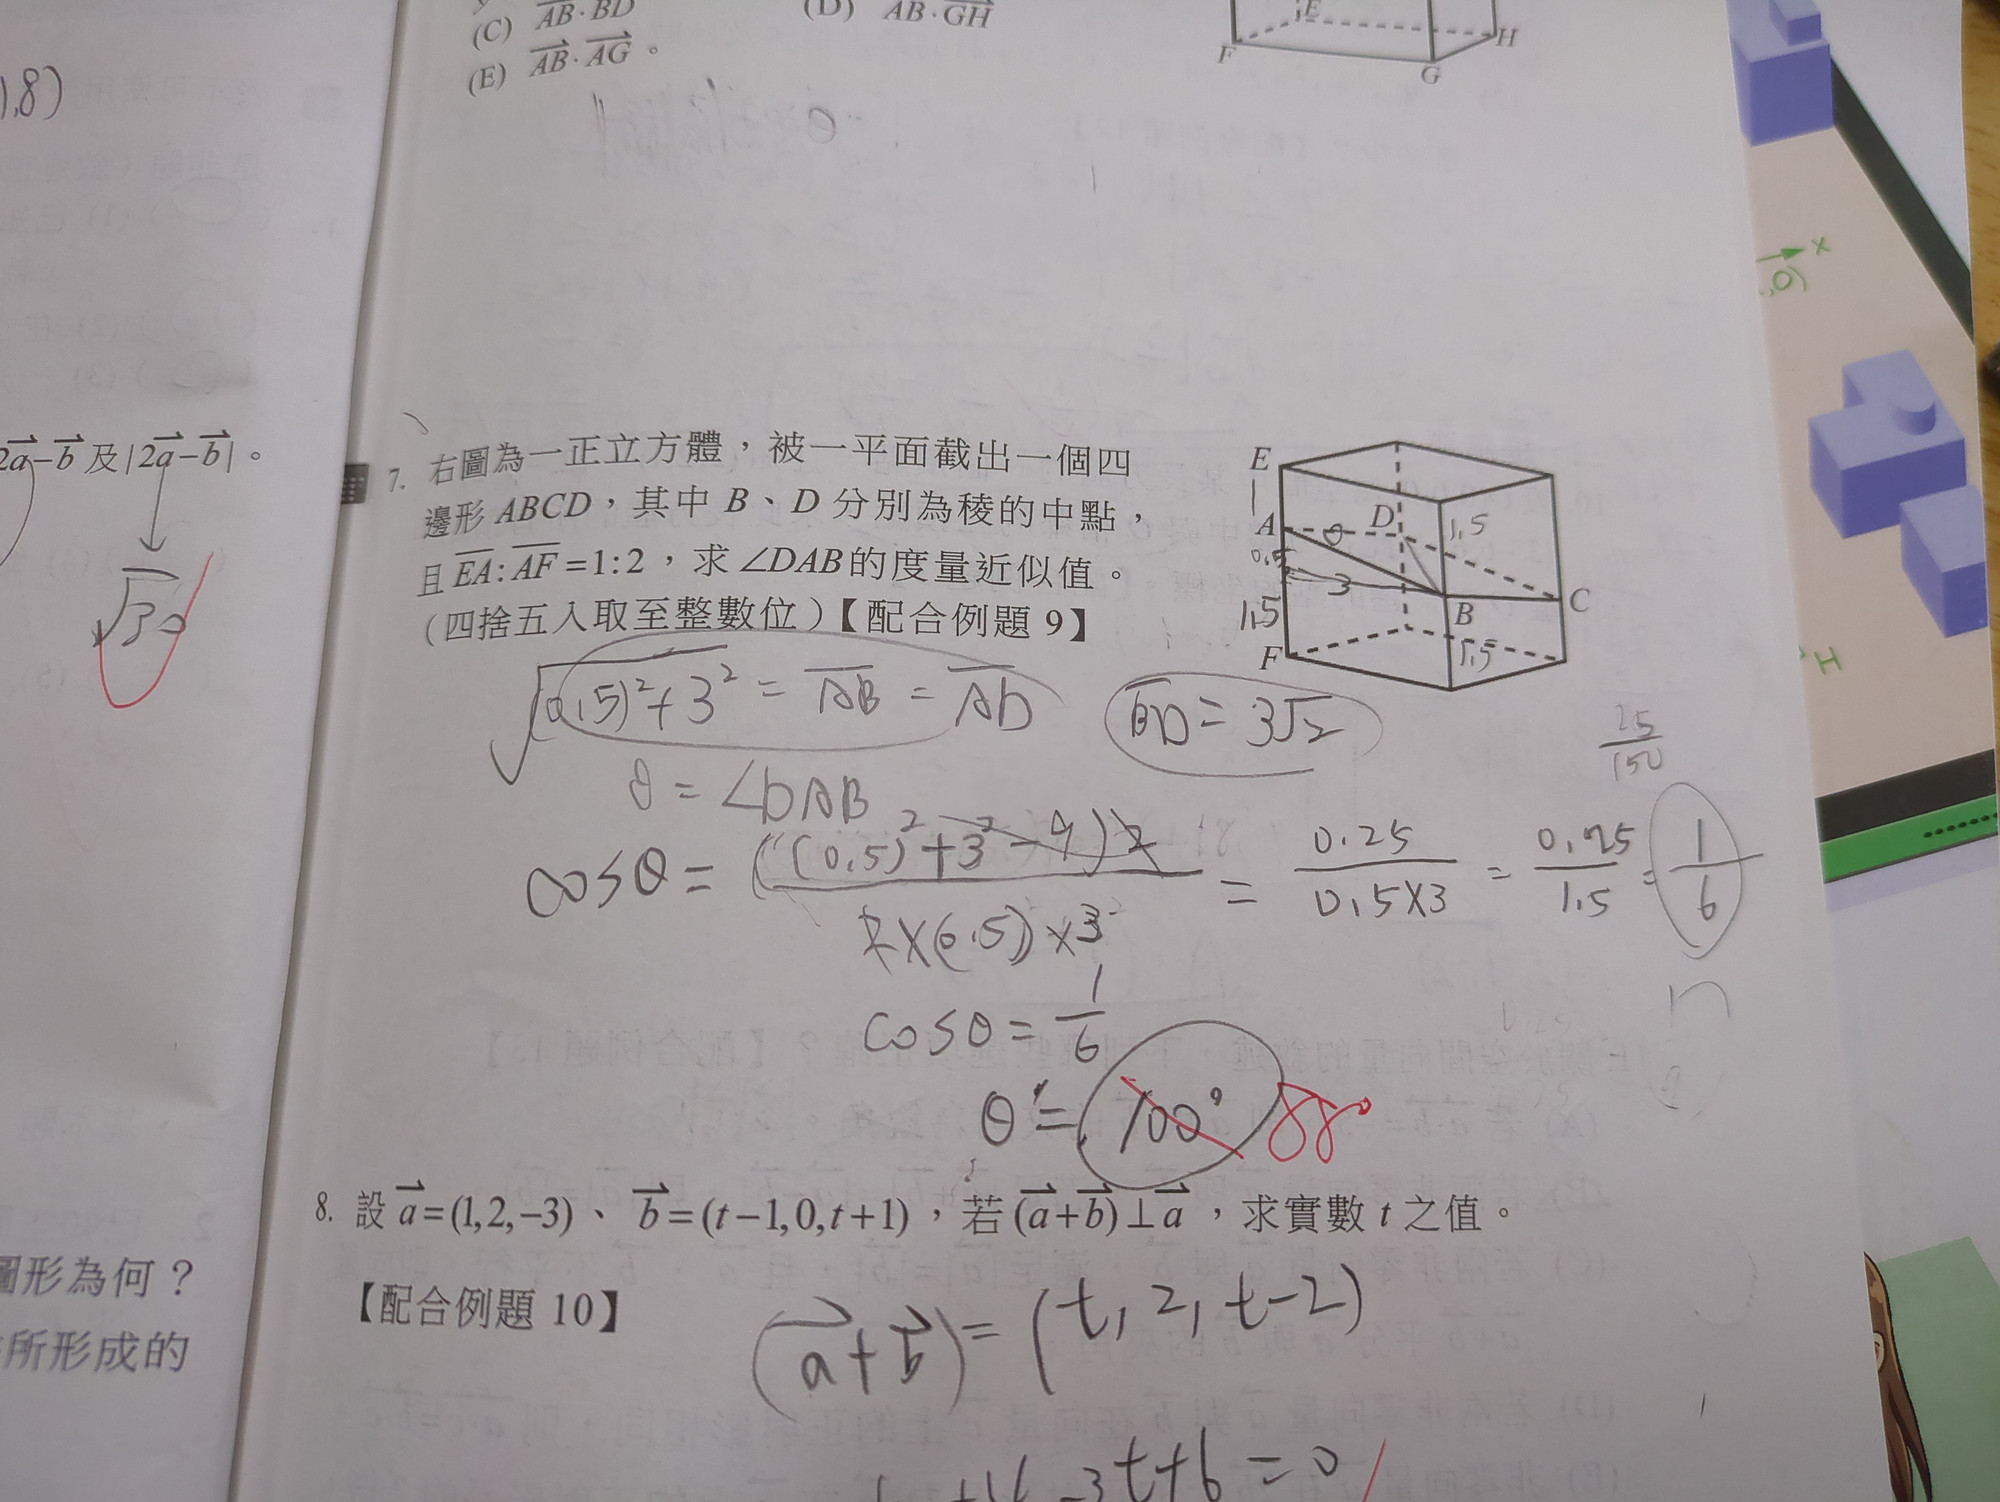 (C) AB·BD
(D) AB·GH
(E) AB·AG。
E
H
F
G
1,8)
2a-b及|2a-b|。
√30
圖形為何?
所形成的
7. 右圖為一正立方體,被一平面截出一個四
邊形ABCD,其中B、D分別為稜的中點,
且EA:AF=1:2,求∠DAB的度量近似值。
(四捨五入取至整數位)【配合例題9】
E
1
A
D
θ
1.5
0.5
3
B
C
1.5
F
1.5
√(0.5)²+3² = AB = AD
BD = 3√2
θ = ∠DAB
25/150
cosθ = ((0.5)²+3²-9)2 / 2×(0.5)²×3² = 0.25/0.5×3 = 0.25/1.5 = 1/6
cosθ = 1/6
θ = 100° 88°
8. 設a=(1,2,-3)、b=(t-1,0,t+1),若(a+b)⊥a,求實數t之值。
【配合例題10】
(a+b) = (t, 2, t-2)
-3t+6=0
x
,0)
H